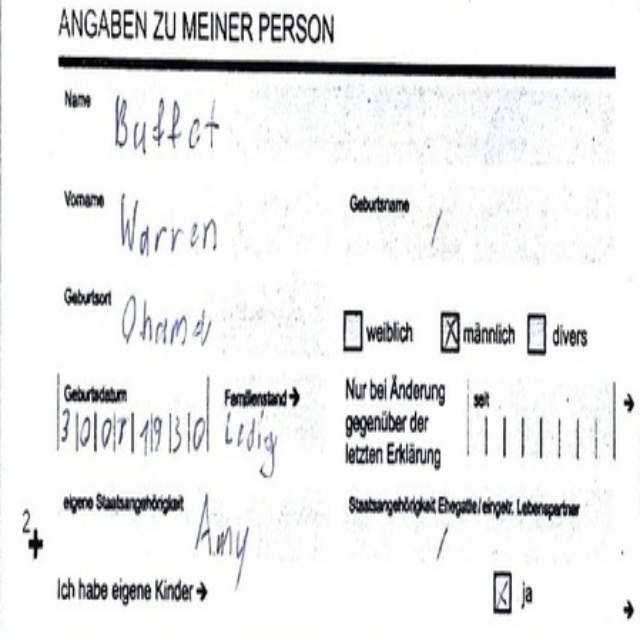 ANGABEN ZU MEINER PERSON
Name Buffet
Vorname Warren
Geburtsname /
Geburtsort Ohama
weiblich männlich divers
Geburtsdatum 30081930
Familienstand → Ledig
Nur bei Änderung
gegenüber der
letzten Erklärung
seit
eigene Staatsangehörigkeit Amy
Staatsangehörigkeit Ehegatte / eingetr. Lebenspartner /
2
Ich habe eigene Kinder → ja